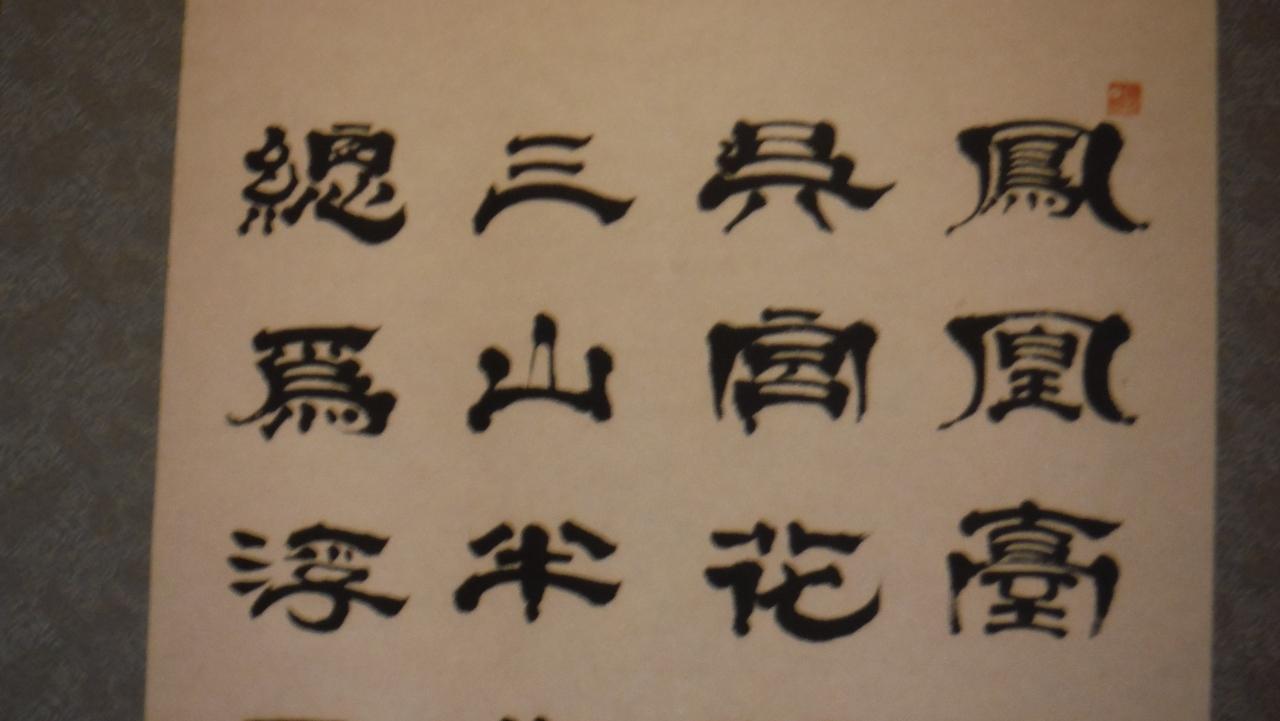 鳳凰臺
吳宮花
三山半
總爲浮